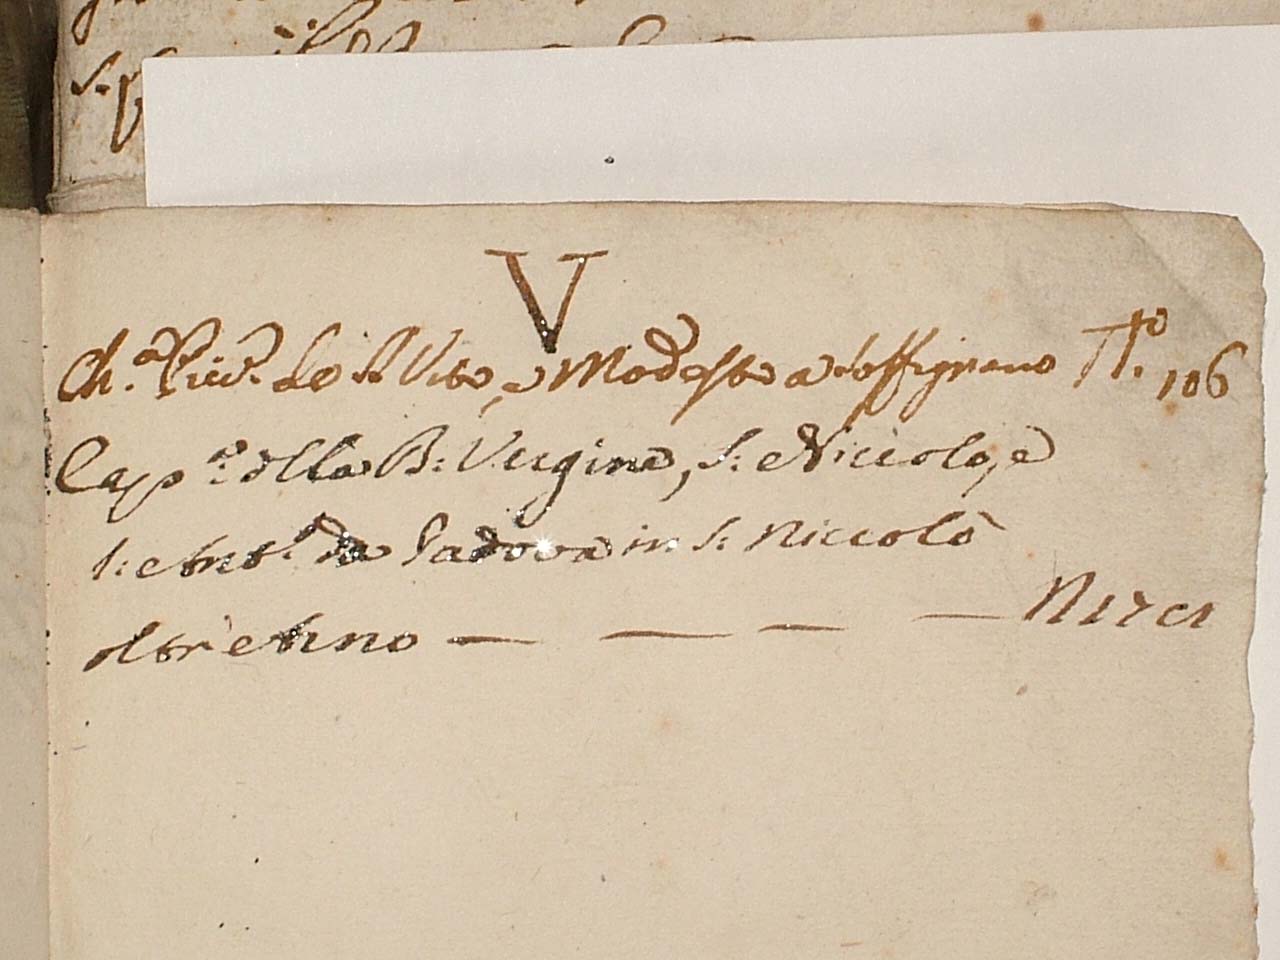 V
Ch.a Priv.a de SS Vito, e Modesto a Soffignano T.o 106
Capp.a della B: Vergine, S: Niccola, e
S: Ant.o da Padova in S: Niccolò
oltr'Arno — — — — N 17